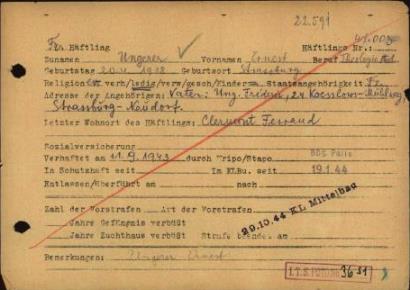 22.591
Fr. Häftling Häftlings Nr.: 41.005
Zunamen Ungerer Vornamen Ernest Beruf Theologie
Geburtstag 20.4.1918 Geburtsort Strassburg
Religion verh/ledig/verw/gesch/Kinder Staatsangehörigkeit Fr.
Adresse der Angehörigen: Vater: Ung. Frédéric, 24
Strassburg-Neudorf.
Letzter Wohnort des Häftlings: Clermont Ferrand
Sozialversicherung
Verhaftet am 11.9.1943 durch Kripo/Stapo BDS Paris
In Schutzhaft seit In KL.Bu. seit 19.1.44
Entlassen/Überführt am nach
Zahl der Vorstrafen Art der Vorstrafen
29.10.44 KL Mittelbau
Jahre Gefängnis verbüßt
Jahre Zuchthaus verbüßt Strafe beendet am
Bemerkungen: Ungerer Ernest
I.T.S. FOTO No. 3651